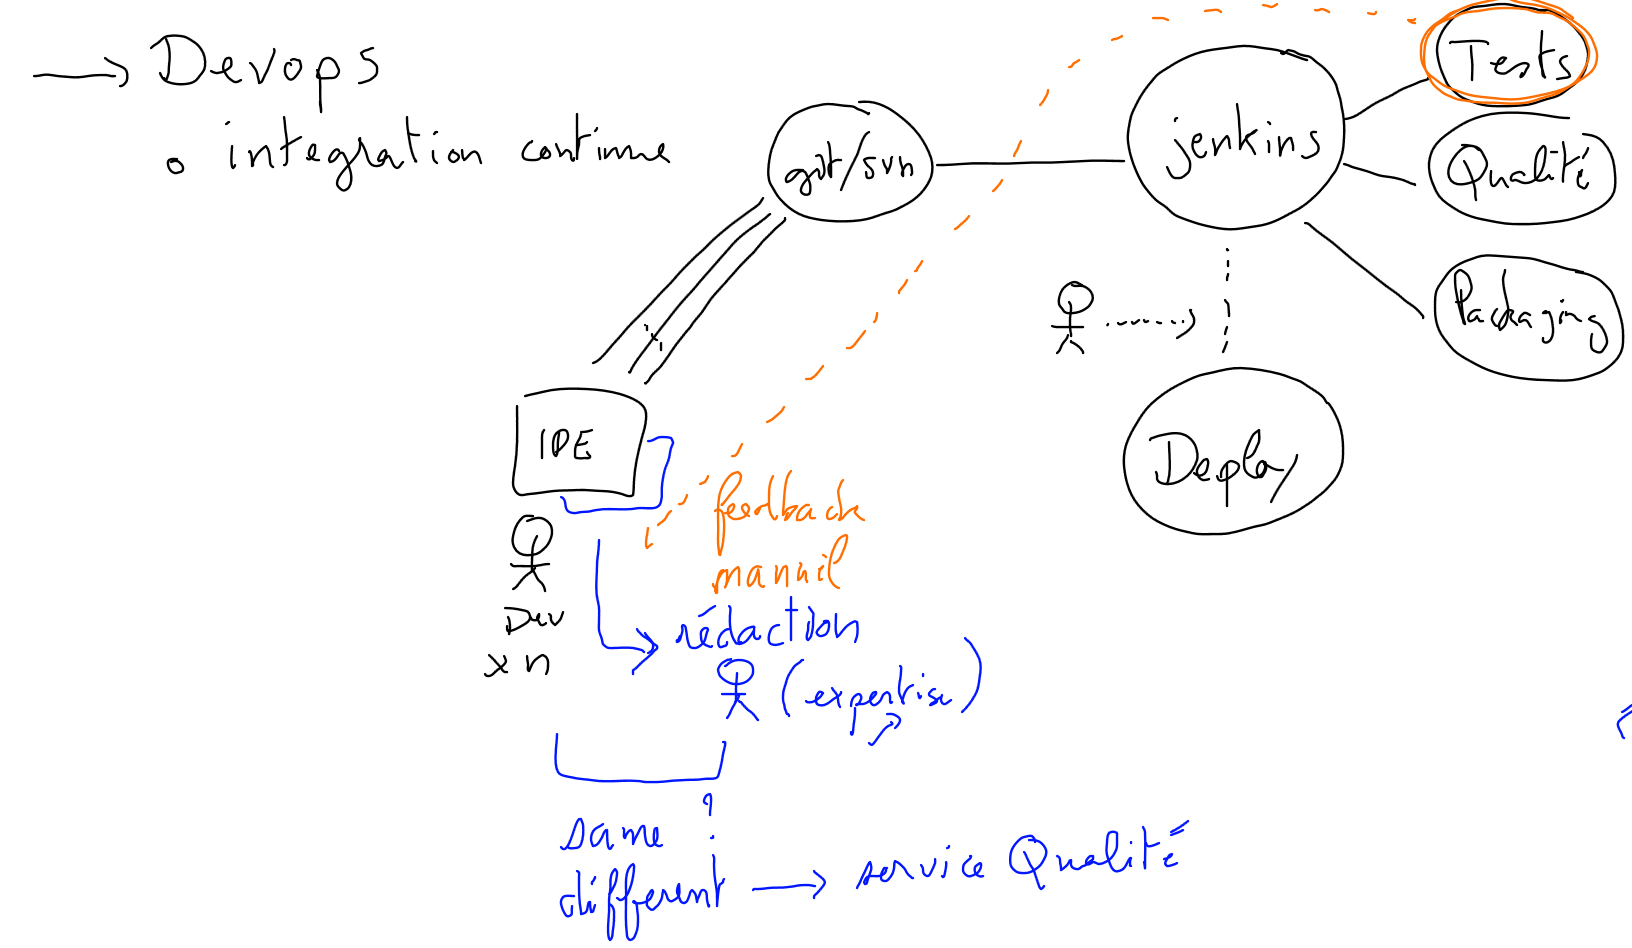 → Devops
o integration continue
git/svn
jenkins
Tests
Qualité
Packaging
Deploy
IDE
Dev
x n
feedback
manuel
rédaction
(expertise)
same ?
différent → service Qualité